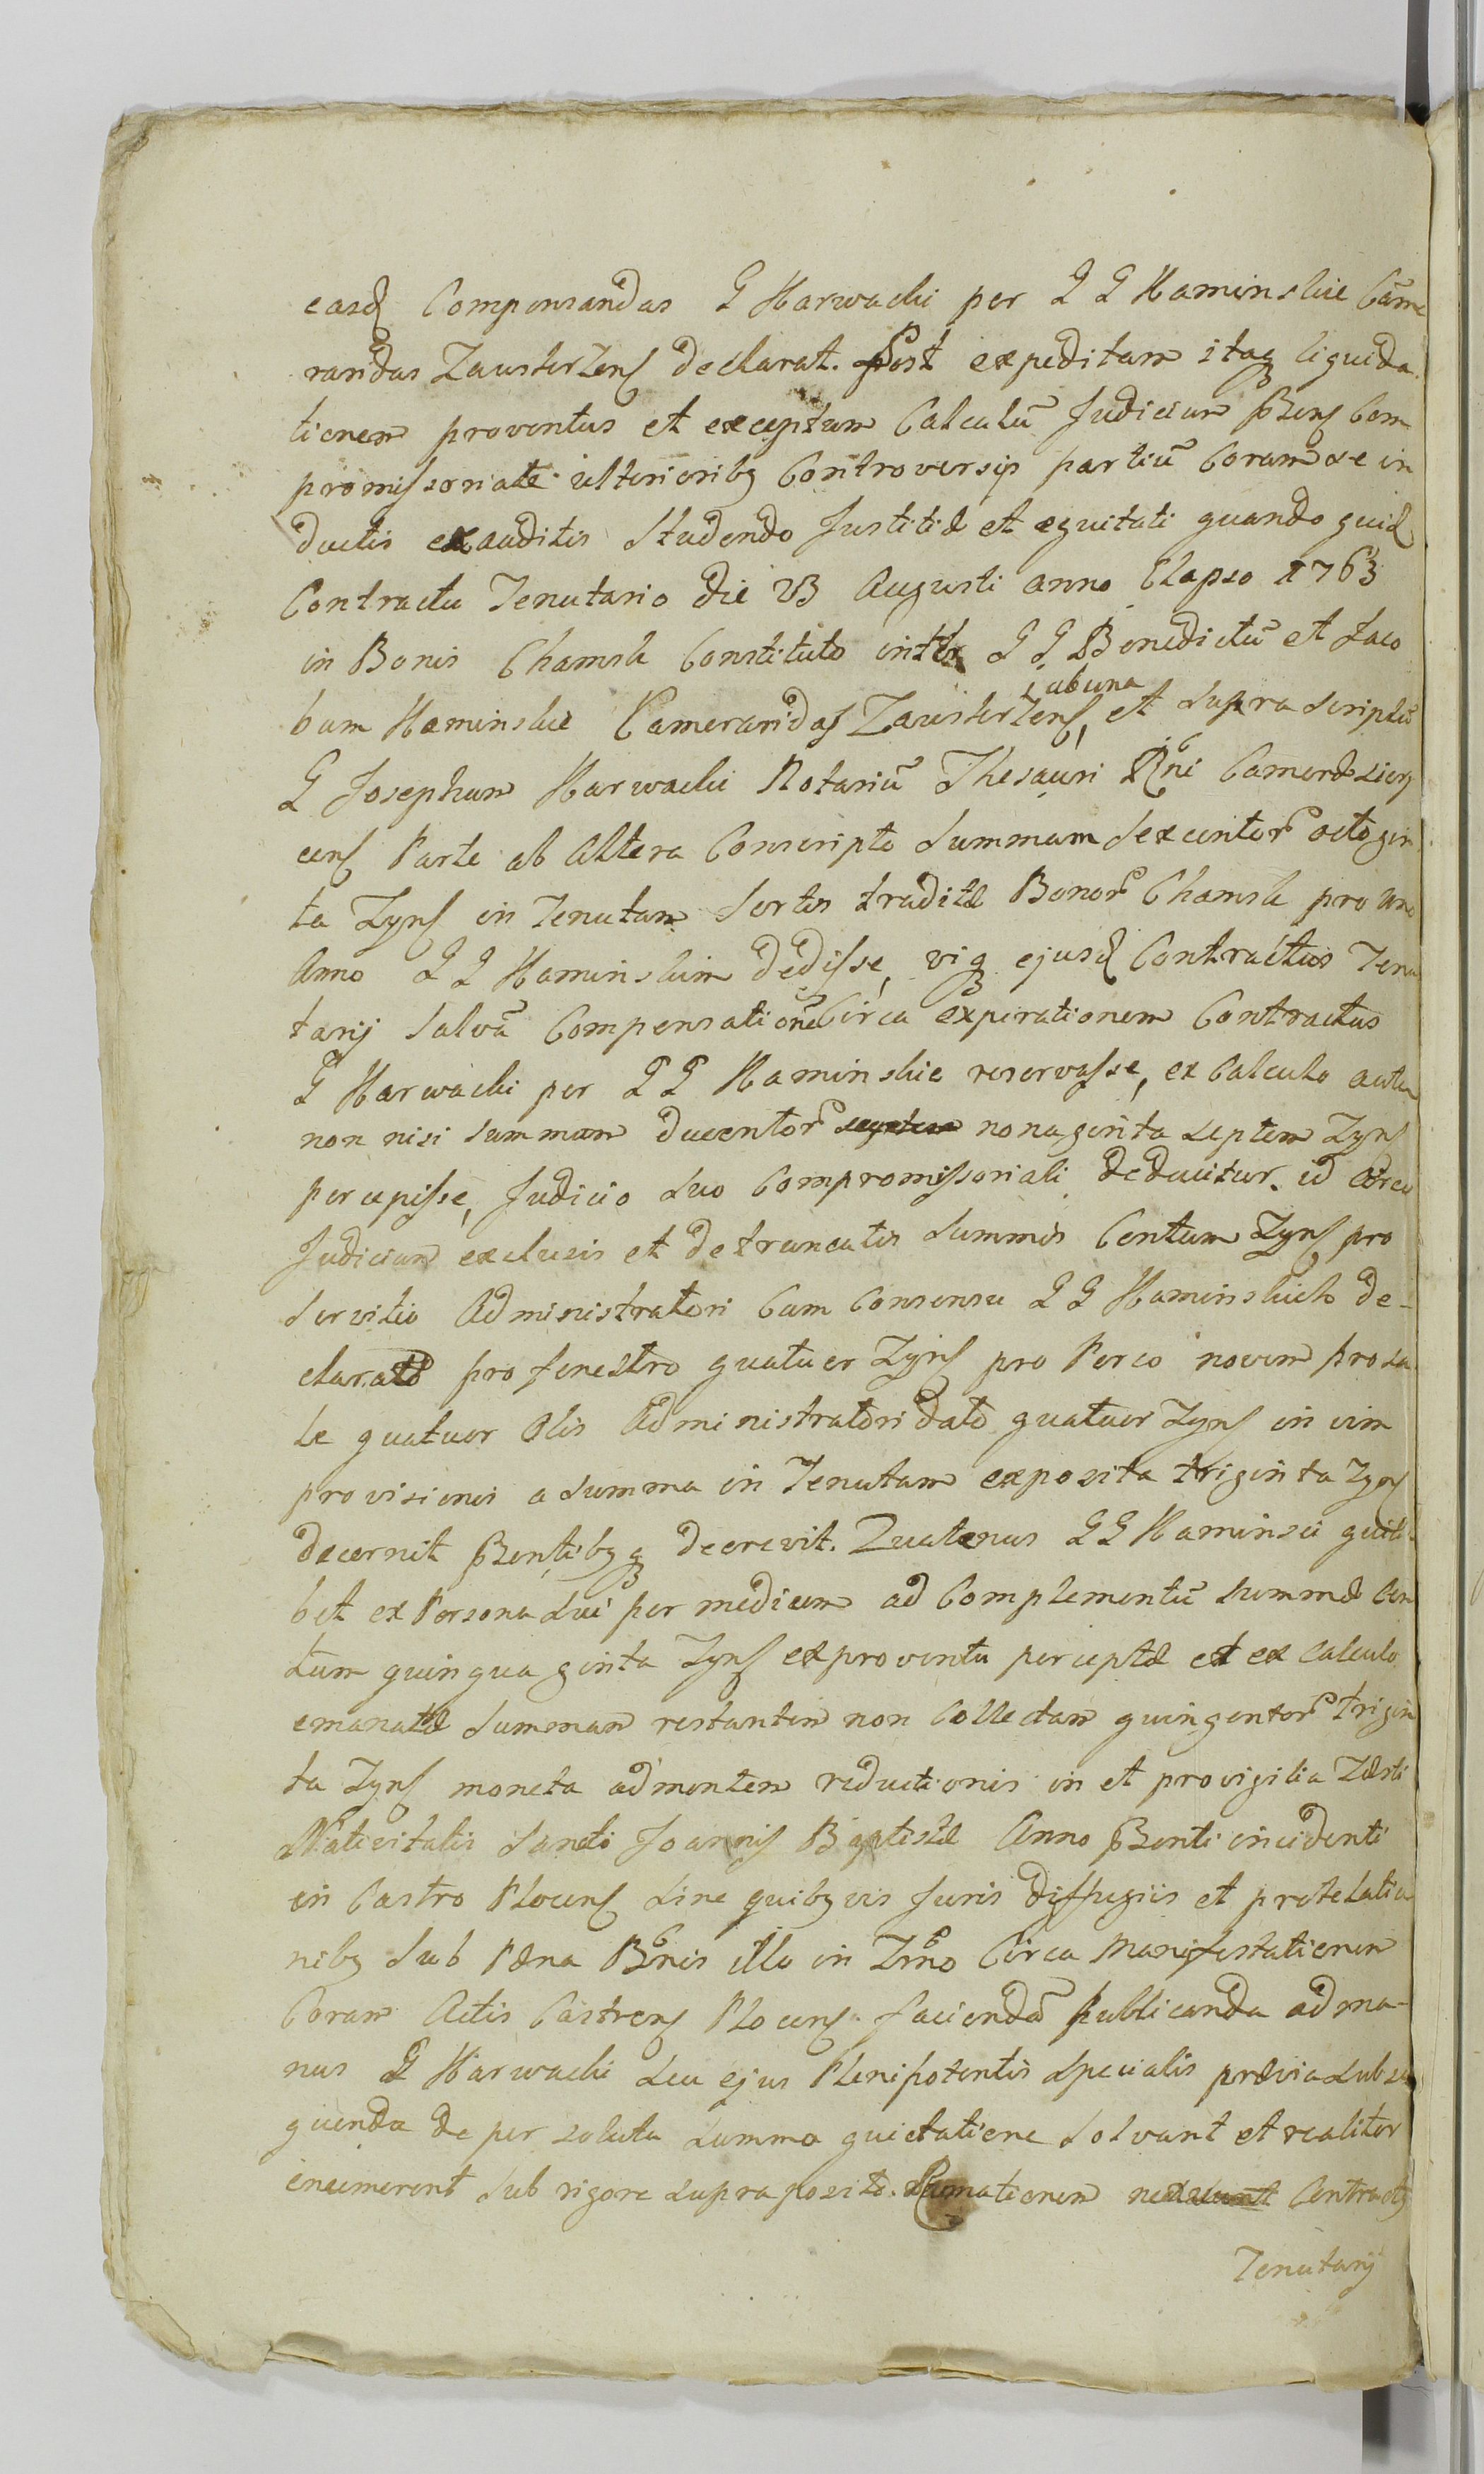 easq Compensandas G Karwacki per G G Kaminskie Came
randas Zawskrzens declarat. Post expeditam itaq liquida
tionem proventus et exceptum Calculū Judicium Pzens Com
promissoriale ulterioribq Controversijs partiū Coram se in
ductis exauditis Studendo Justitiæ et equitati quando quid
Contractu Tenutario die 23 Augusti anno Elapso 1763
in Bonis Chamsk Constituto inter G G Benedictū et Jaco
bum Kaminskie Camerandas Zawskrzens, ab una et supra scriptū
G Josephum Karwacki Notariū Thesauri Rni Cameræ
cens Parte ab Altera Conscripto Summam Sexcentor octogin
ta Zyns in Tenutam Sortis traditæ Bonor Chamsk pro uno
Anno G G Kaminskim dedisse, viq ejusd Contractus Tenu
tarij Salvā Compensationē Circa expirationem Contractus
G Karwacki per G G Kaminskie reservasse, ex Calculo autem
non nisi summam ducentor nonaginta septem Zyns
percepisse, Judicio suo Compromissoriali deducitur. id circo
Judicium exclusis et detruncatis summis Centum Zyns pro
servitio Administratori Cum Consensu G G Kaminskich de-
clarato pro fenestro quatuor Zyns pro Porco novem pro sa
le quatuor Olis Administratori dato quatuor Zyns in vim
provisionis a summa in Tenutam exposita triginta Zyns
decernit Pzentibqq decrevit. Quatenus G G Kaminscii quili
bet ex Persona sui per medium ad Complementū summæ Cen
tum quinquaginta Zyns ex proventu perceptæ et ex Calculo
emanatæ summam restantem non Collectam quingentor trigin
ta Zyns moneta ad mentem reductionis in et pro vigilia Festi
Nativitatis Sancti Joannis Baptistæ Anno Pzenti incidenti
in Castro Plocens sine quibqvis Juris diffugiis et protelatio
nibq Sub Pæna Bnis illo in Trno Circa Manifestationem
Coram Actis Castrens Plocens faciendā Publicanda ad ma-
nus G Karwacki seu ejus Plenipotentis specialis prævia subse
quenda de persoluta summa quietatione solvant et realiter
enumerent sub rigore supra posito. Contractq
Tenutarij